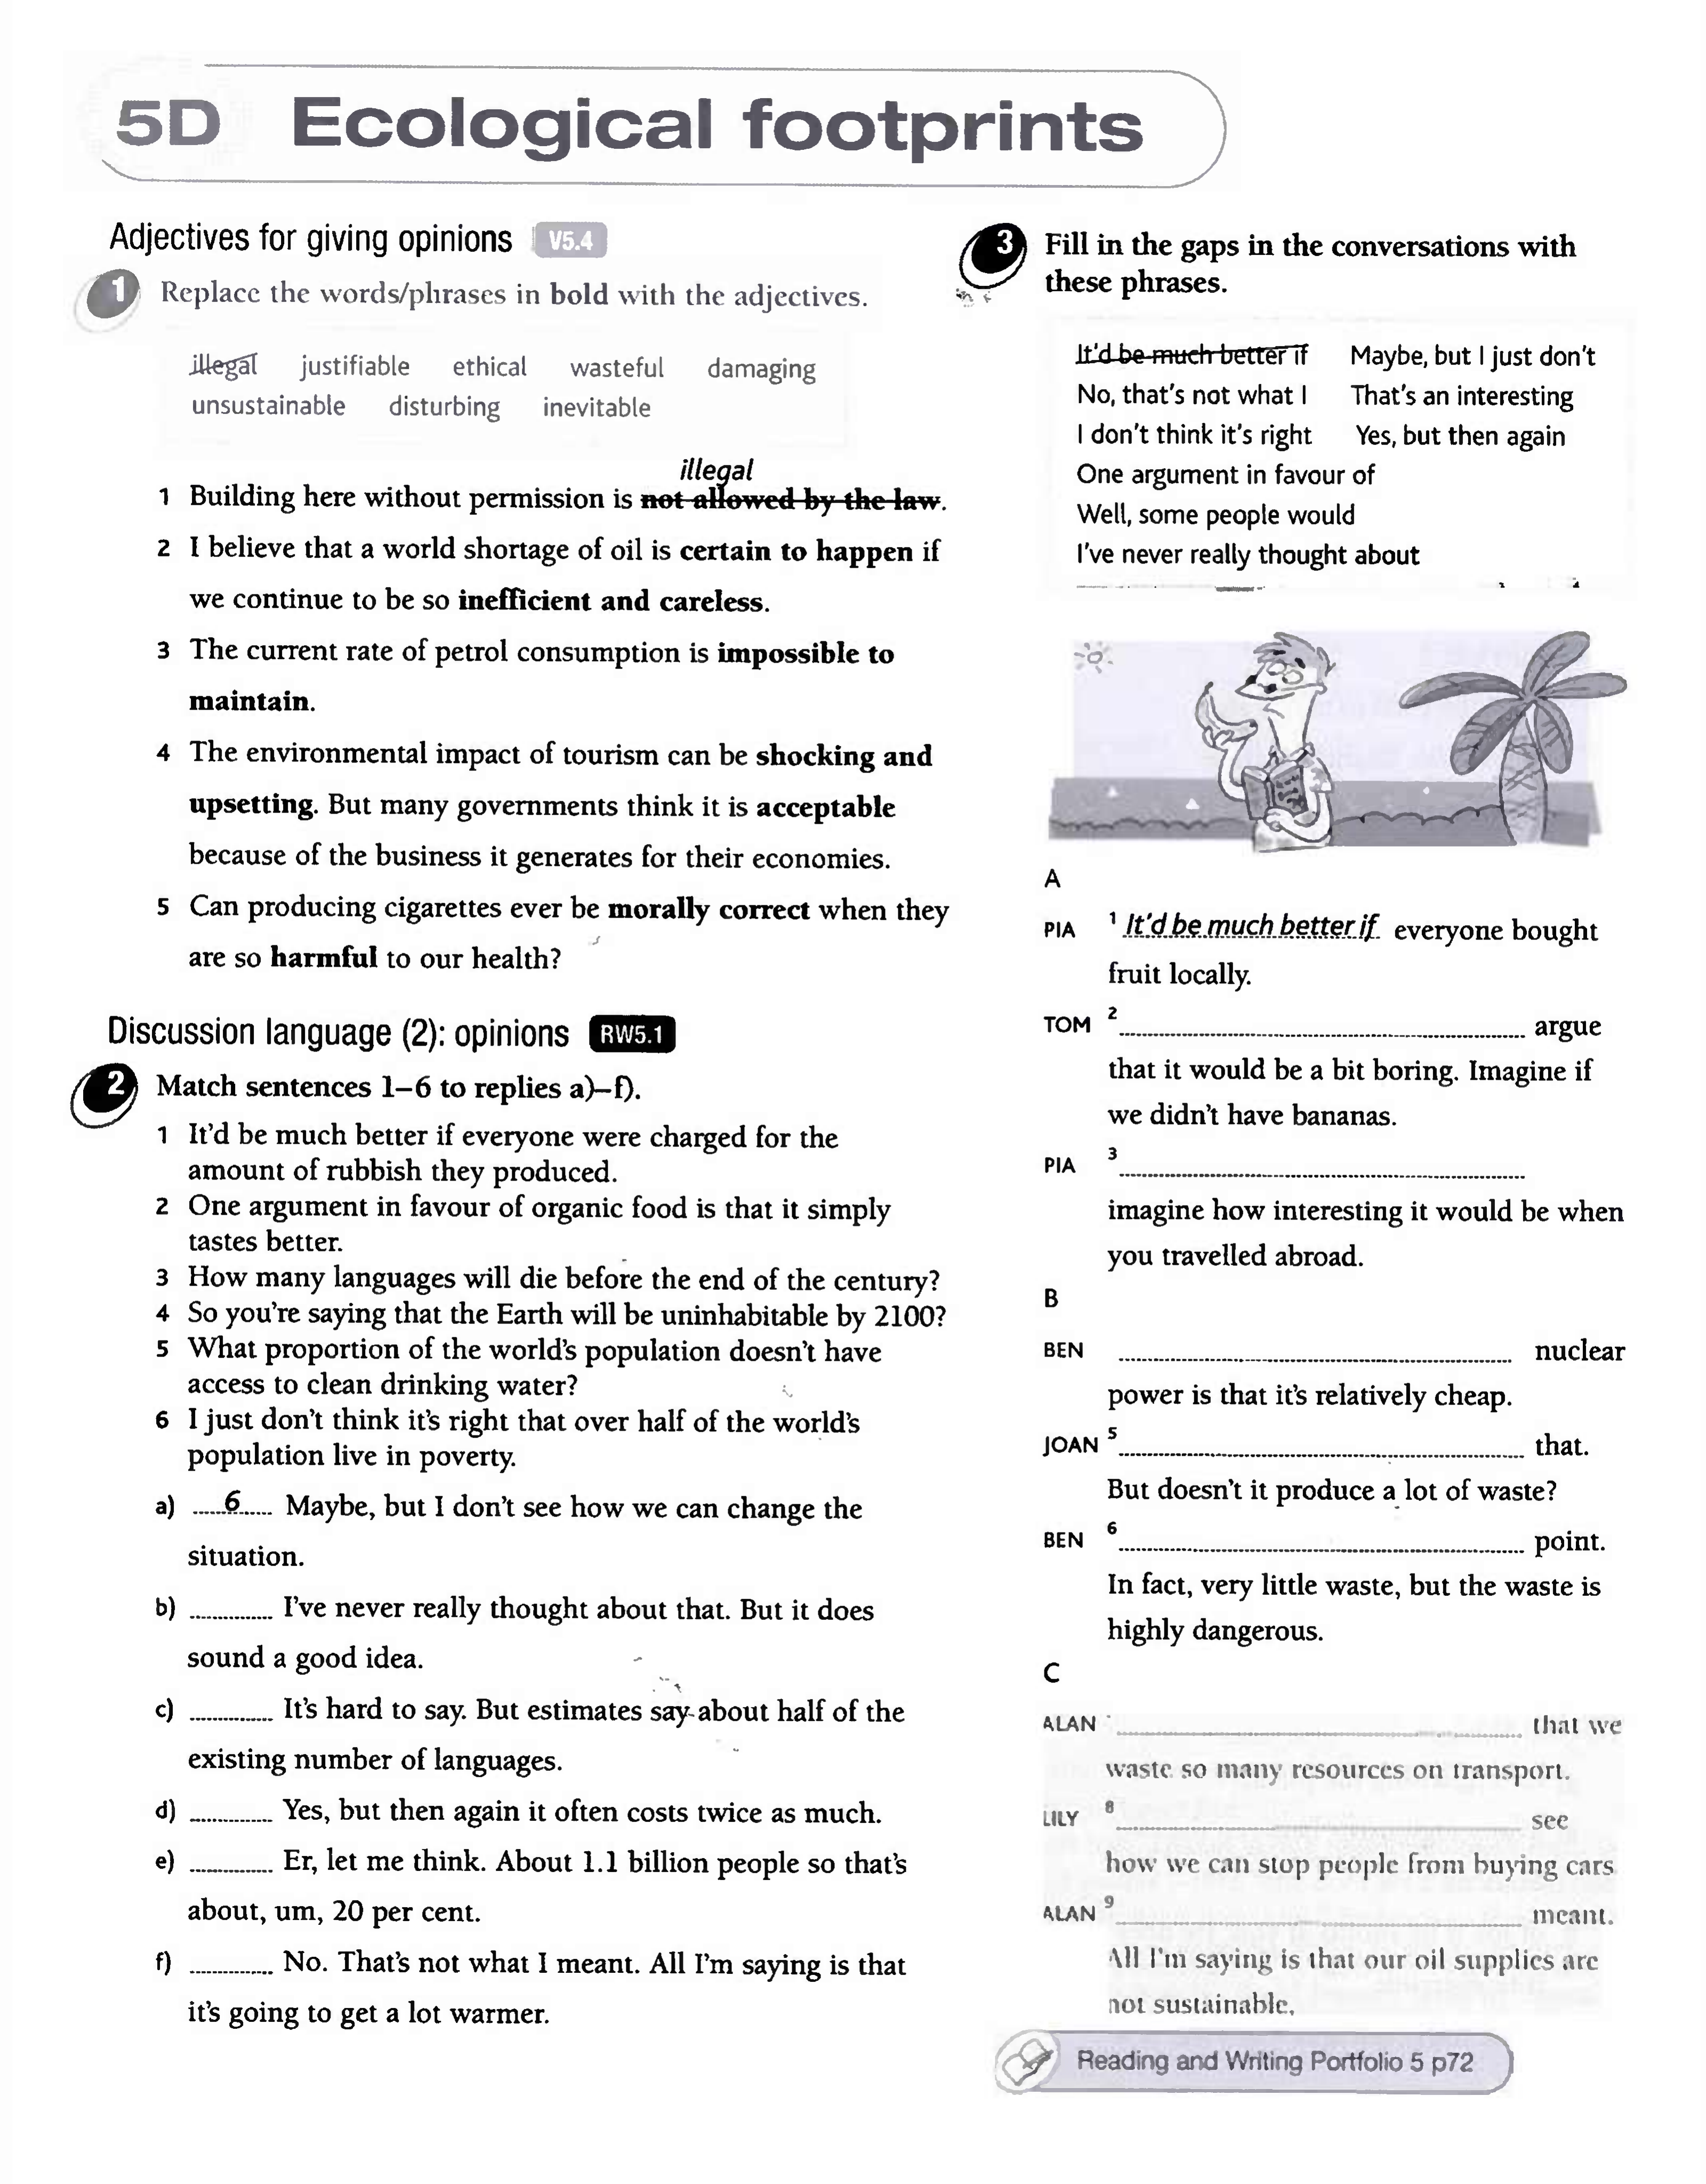 5D Ecological footprints
Adjectives for giving opinions V5.4
1 Replace the words/phrases in bold with the adjectives.
illegal justifiable ethical wasteful damaging
unsustainable disturbing inevitable
illegal
1 Building here without permission is not allowed by the law.
2 I believe that a world shortage of oil is certain to happen if
we continue to be so inefficient and careless.
3 The current rate of petrol consumption is impossible to
maintain.
4 The environmental impact of tourism can be shocking and
upsetting. But many governments think it is acceptable
because of the business it generates for their economies.
5 Can producing cigarettes ever be morally correct when they
are so harmful to our health?
Discussion language (2): opinions RW5.1
2 Match sentences 1–6 to replies a)–f).
1 It'd be much better if everyone were charged for the
amount of rubbish they produced.
2 One argument in favour of organic food is that it simply
tastes better.
3 How many languages will die before the end of the century?
4 So you're saying that the Earth will be uninhabitable by 2100?
5 What proportion of the world's population doesn't have
access to clean drinking water?
6 I just don't think it's right that over half of the world's
population live in poverty.
a) 6 Maybe, but I don't see how we can change the
situation.
b) I've never really thought about that. But it does
sound a good idea.
c) It's hard to say. But estimates say about half of the
existing number of languages.
d) Yes, but then again it often costs twice as much.
e) Er, let me think. About 1.1 billion people so that's
about, um, 20 per cent.
f) No. That's not what I meant. All I'm saying is that
it's going to get a lot warmer.
3 Fill in the gaps in the conversations with
these phrases.
It'd be much better if Maybe, but I just don't
No, that's not what I That's an interesting
I don't think it's right Yes, but then again
One argument in favour of
Well, some people would
I've never really thought about
A
PIA 1 It'd be much better if everyone bought
fruit locally.
TOM 2 argue
that it would be a bit boring. Imagine if
we didn't have bananas.
PIA 3
imagine how interesting it would be when
you travelled abroad.
B
BEN nuclear
power is that it's relatively cheap.
JOAN 5 that.
But doesn't it produce a lot of waste?
BEN 6 point.
In fact, very little waste, but the waste is
highly dangerous.
C
ALAN that we
waste so many resources on transport.
LILY 8 see
how we can stop people from buying cars
ALAN 9 meant.
All I'm saying is that our oil supplies are
not sustainable.
Reading and Writing Portfolio 5 p72